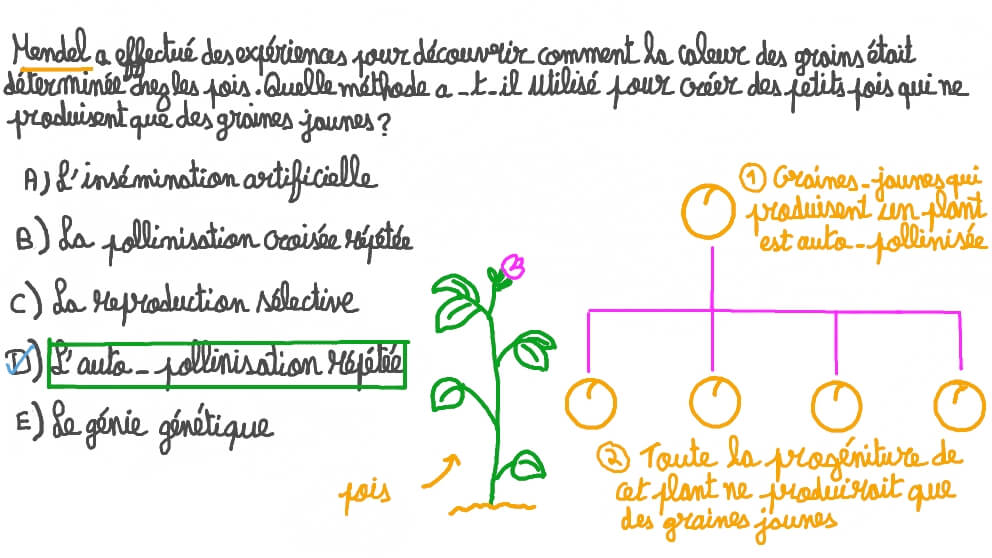 Mendel a effectué des expériences pour découvrir comment la couleur des grains était
déterminée chez les pois. Quelle méthode a-t-il utilisé pour créer des petits pois qui ne
produisent que des graines jaunes?
A) L'insémination artificielle
B) La pollinisation croisée répétée
C) La reproduction sélective
D) L'auto-pollinisation répétée
E) Le génie génétique
pois
① Graines-jaunes qui
produisent un plant
est auto-pollinisée
② Toute la progéniture de
cet plant ne produirait que
des graines jaunes